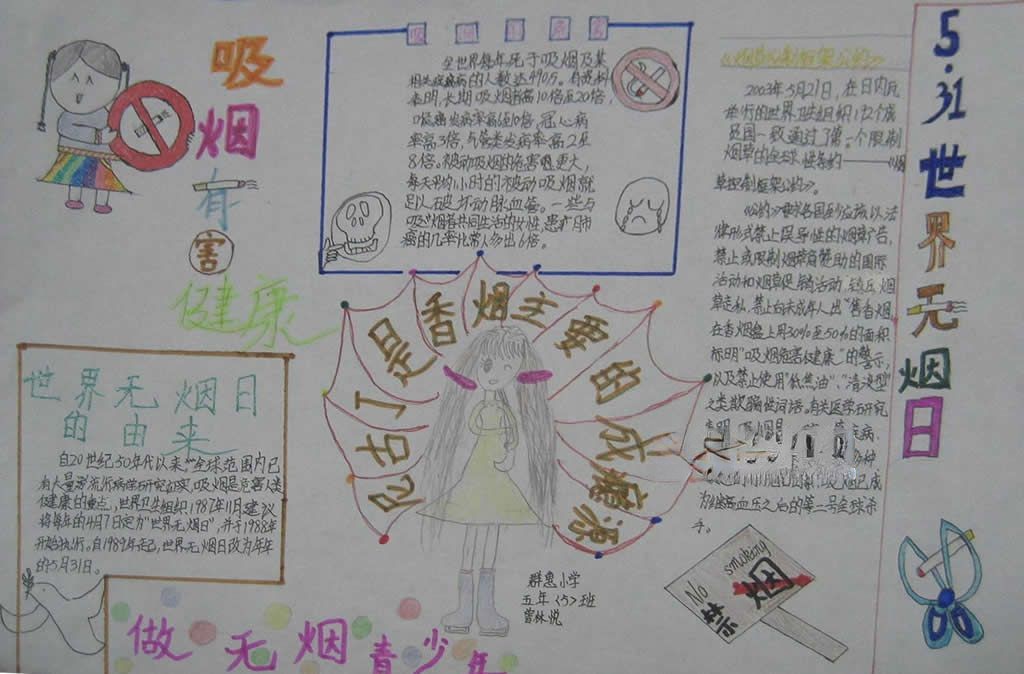 吸
烟
有
害
健康
吸烟的危害
全世界每年死于吸烟及其
相关疾病的人数达490万。有资料
表明,长期吸烟者高10倍至20倍,
喉癌发病率高6至10倍,冠心病
率高3倍,气管类发病率高2至
8倍。被动吸烟的危害更大,
每天平均1小时的被动吸烟就
足以破坏动脉血管。一些与
吸烟者共同生活的女性,患肺
癌的几率比常人多出6倍。
尼古丁是香烟主要的成瘾源
世界无烟日
的由来
自20世纪50年代以来,全球范围内已
有大量流行病学研究证实,吸烟是危害人类
健康的重点,世界卫生组织1987年11月建议
将每年的4月7日定为“世界无烟日”,并于1988年
开始执行。自1989年起,世界无烟日改为每年
的5月31日。
做无烟青少年
群惠小学
五年<5>班
曾林悦
No smoking
禁烟
《烟草控制框架公约》
2003年5月21日,在日内瓦
举行的世界卫生组织192个成
员国一致通过了第一个限制
烟草的全球性条约——《烟
草控制框架公约》。
《公约》要求各国到应该以法
律形式禁止误导性的烟草广告,
禁止或限制烟草商赞助的国际
活动和烟草促销活动,打击烟
草走私,禁止向未成年人出售香烟,
在香烟盒上用30%至50%的面积
标明“吸烟危害健康”的警示
以及禁止使用“低焦油”、“清淡型”
之类欺骗性词语。有关医学研究
表明,吸烟是
吸烟已成
为继高血压之后的第二号全球杀
手。
5.31世界无烟日